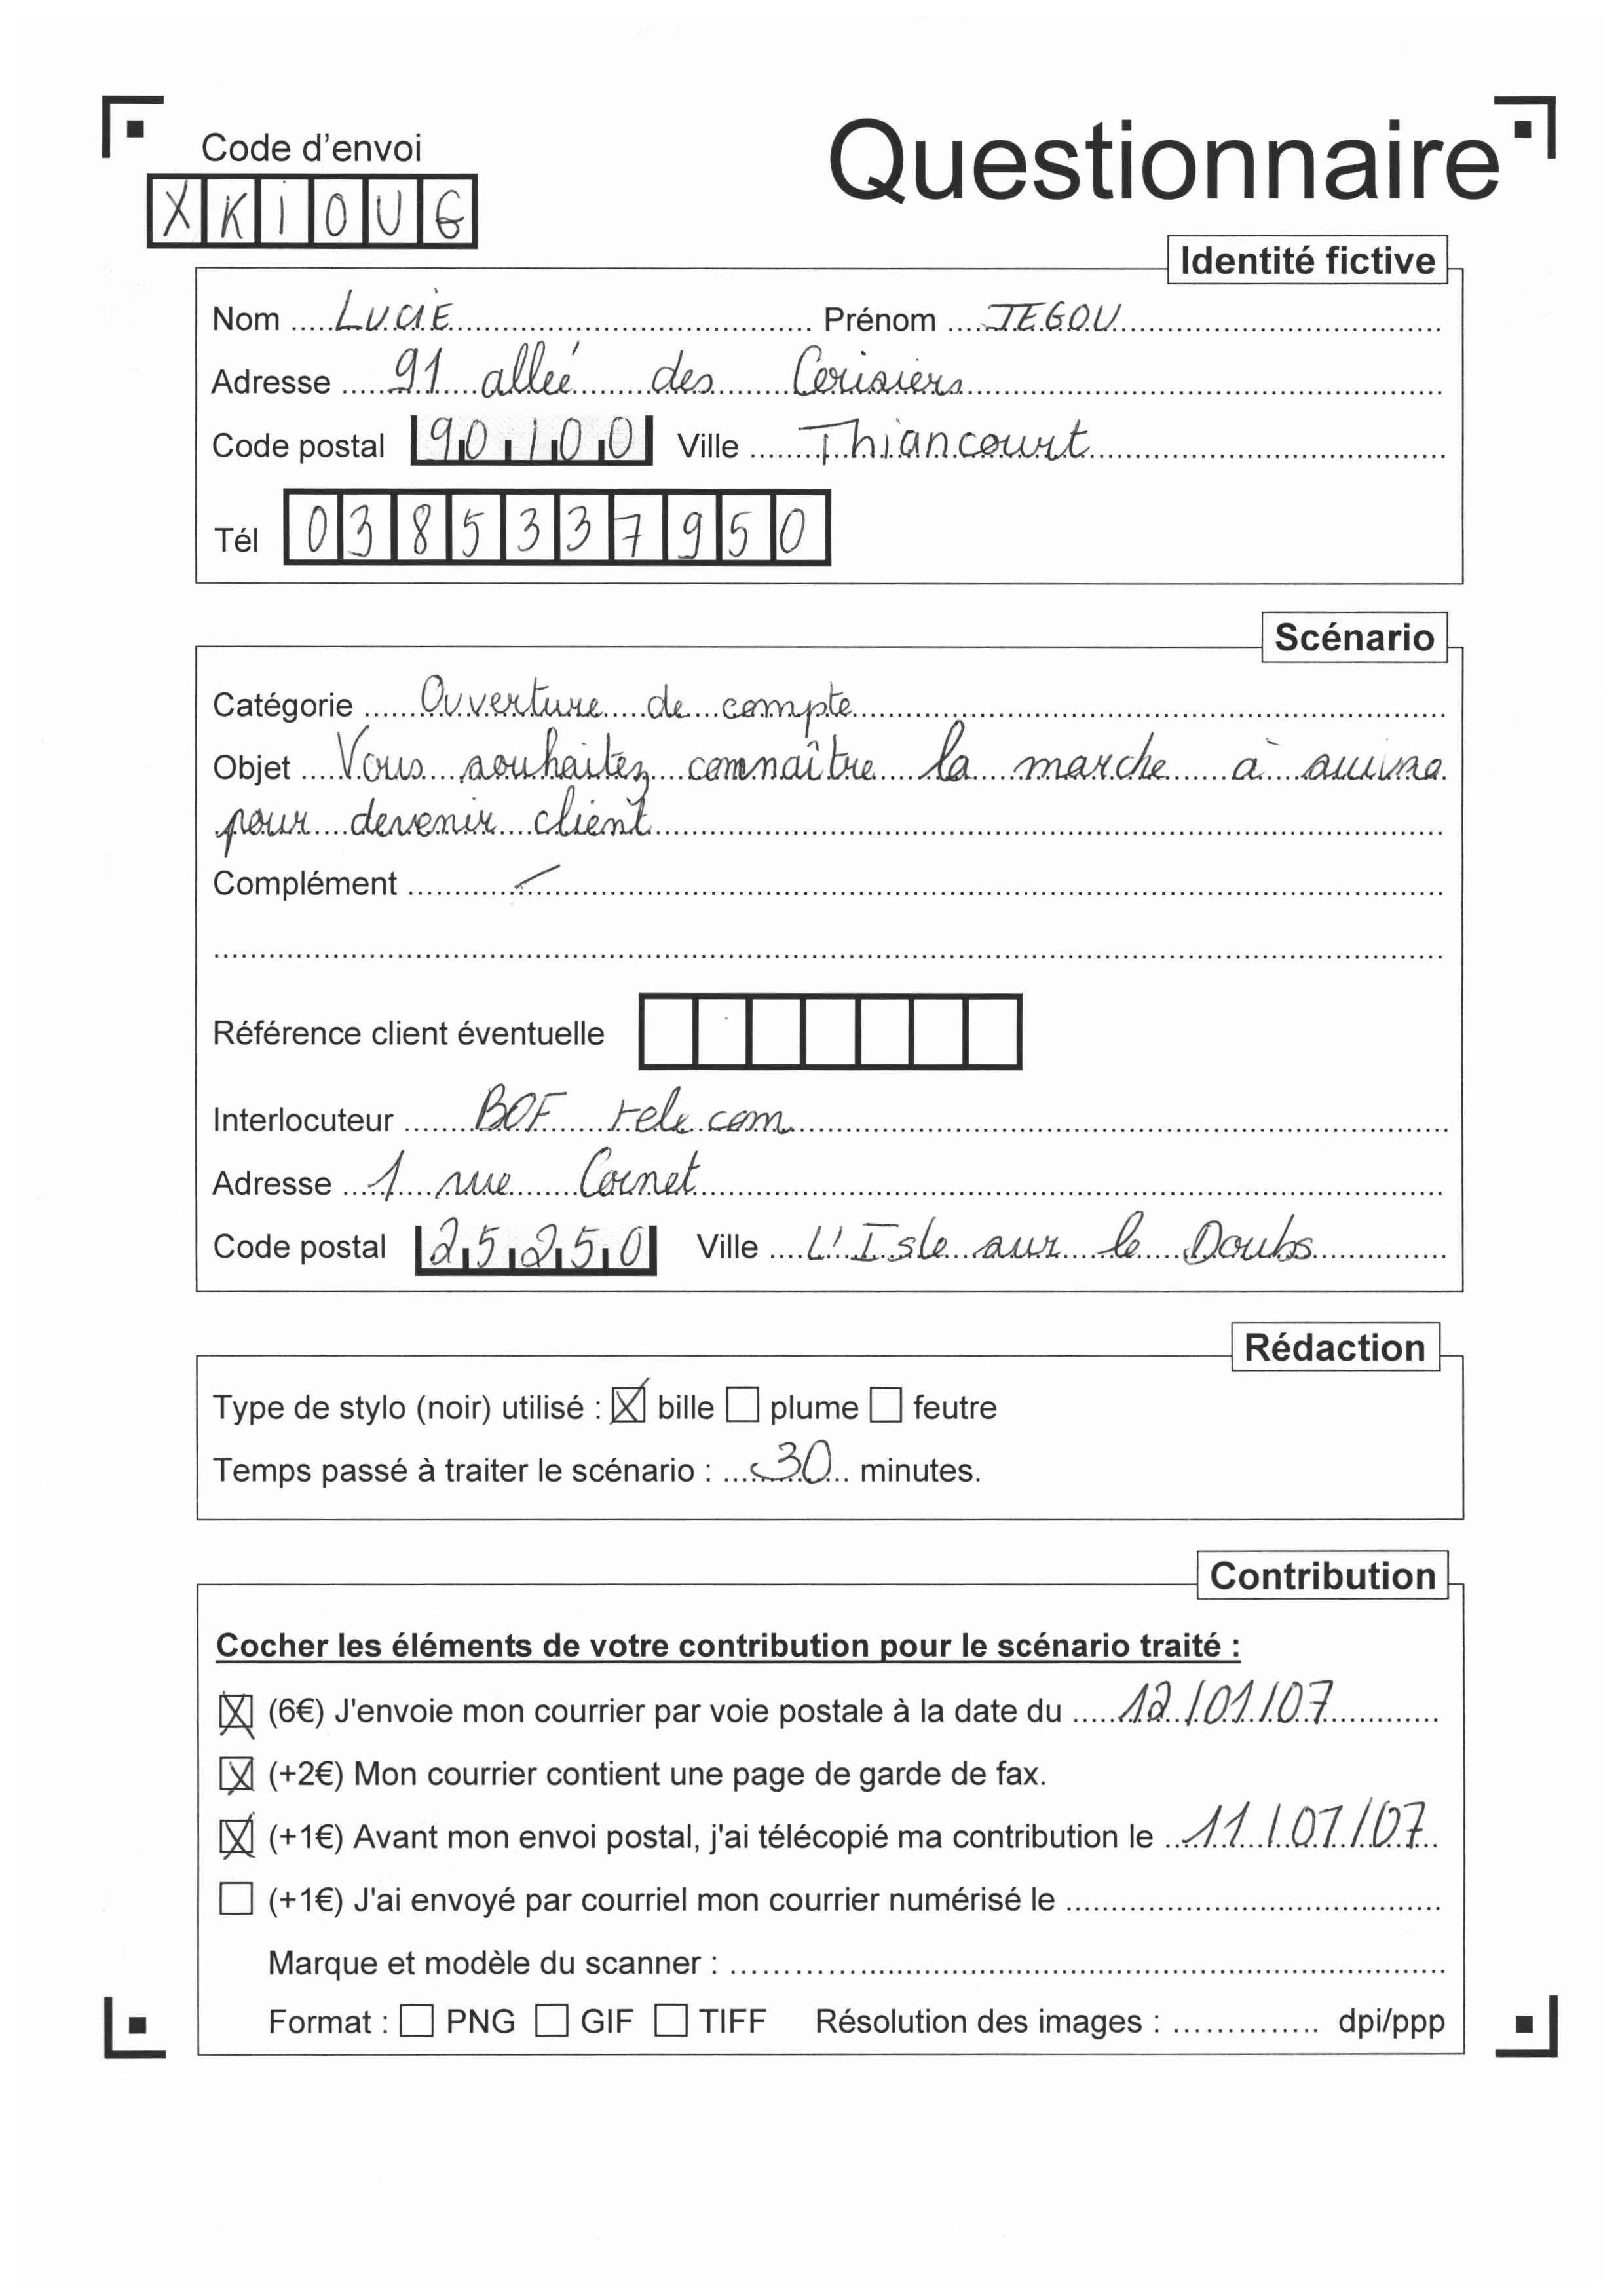 Code d'envoi
Questionnaire
XKIOUG
Identité fictive
Nom LUCIE Prénom JEGOU
Adresse 91 allée des Cerisiers
Code postal 90100 Ville Thiancourt
Tél 0385337950
Scénario
Catégorie Ouverture de compte
Objet Vous souhaitez connaître la marche à suivre
pour devenir client
Complément -
Référence client éventuelle
Interlocuteur BOF telecom
Adresse 1 rue Cornet
Code postal 25250 Ville L'Isle sur le Doubs
Rédaction
Type de stylo (noir) utilisé : ☒ bille ☐ plume ☐ feutre
Temps passé à traiter le scénario : 30 minutes.
Contribution
Cocher les éléments de votre contribution pour le scénario traité :
☒ (6€) J'envoie mon courrier par voie postale à la date du 12/01/07
☒ (+2€) Mon courrier contient une page de garde de fax.
☒ (+1€) Avant mon envoi postal, j'ai télécopié ma contribution le 11/01/07
☐ (+1€) J'ai envoyé par courriel mon courrier numérisé le
Marque et modèle du scanner :
Format : ☐ PNG ☐ GIF ☐ TIFF Résolution des images : dpi/ppp